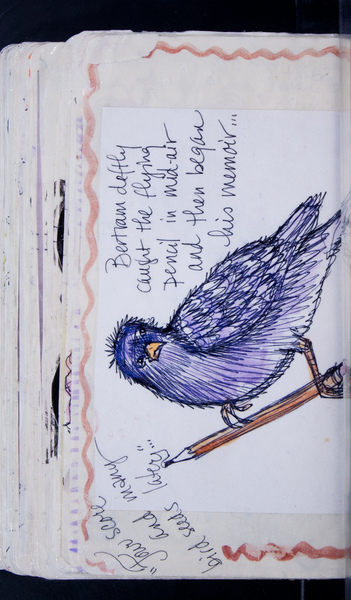 Bertram deftly
caught the flying
pencil in mid-air
and then began
his memoir...
"Four score
and many
bird seeds later..."